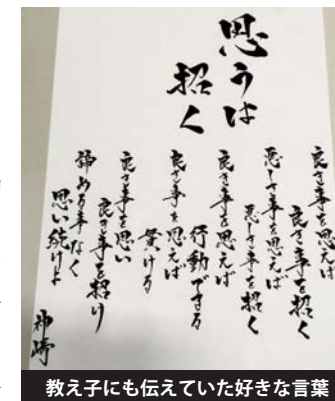 思うは
招く
良き事を思えば
良き事を招く
悪しき事を思えば
悪しき事を招く
良き事を思えば
行動できる
良き事を思えば
貫ける
良き事を思い
良き事を招け
諦める事なく
思い続けよ
神崎
教え子にも伝えていた好きな言葉